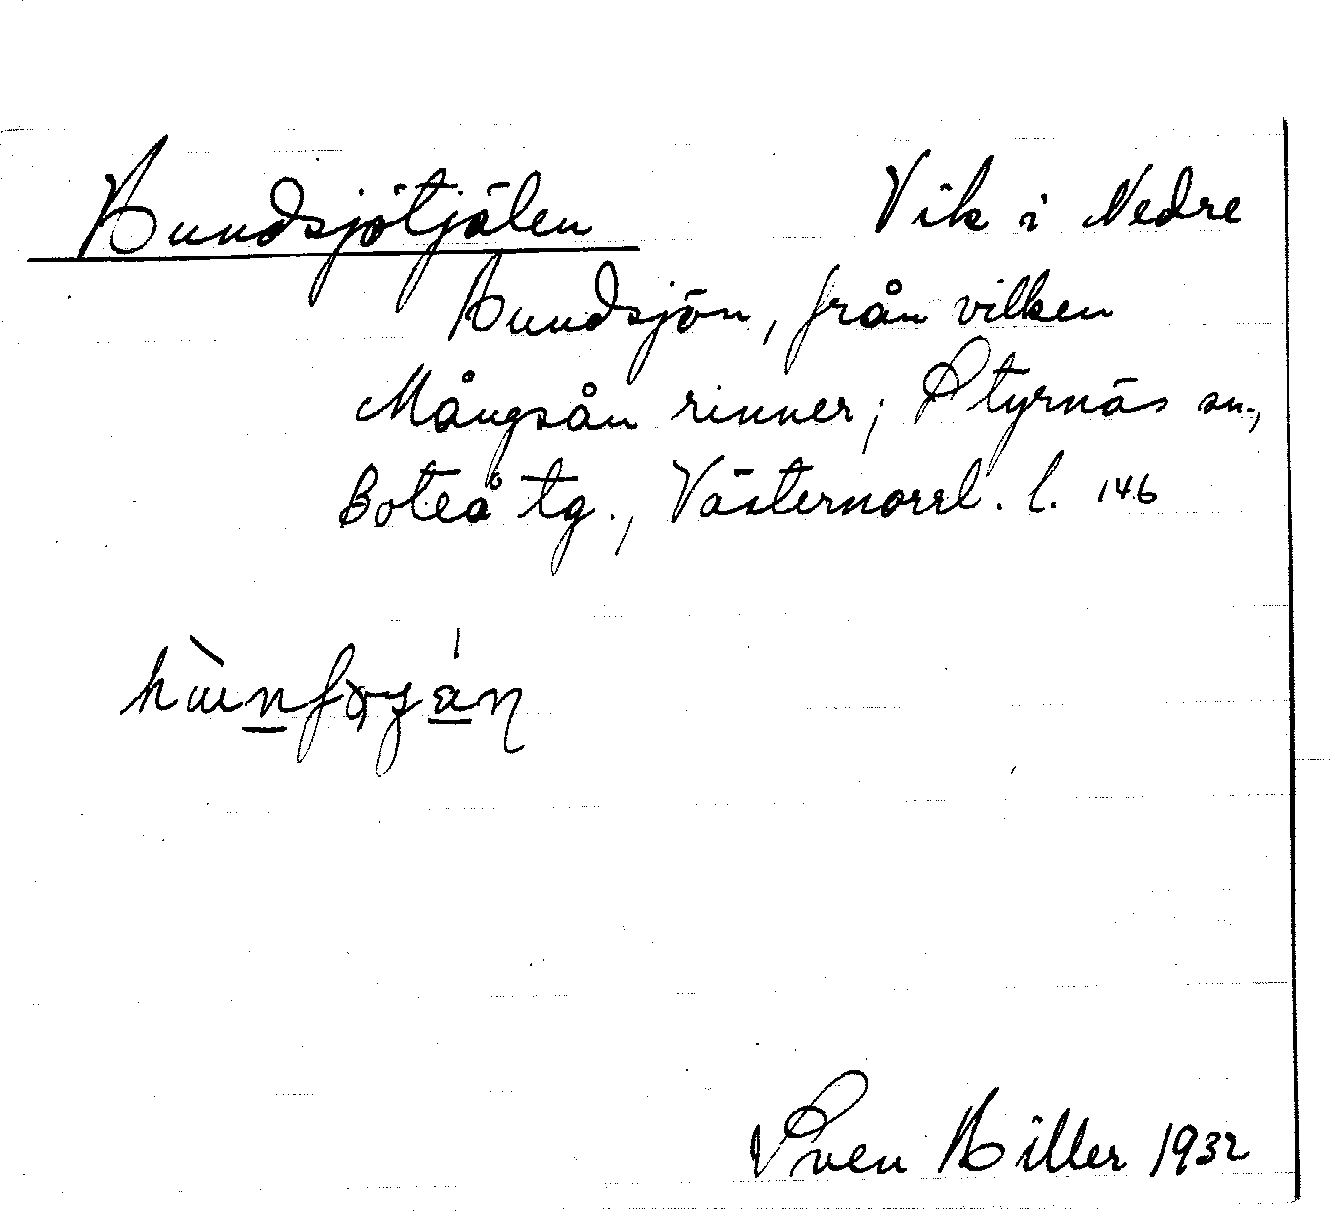 Hundsjötjälen Vik i Nedre
Hundsjön, från vilken
Mångsån rinner; Styrnäs sn.,
Boteå tg., Västernorrl. l. 146
Sven Hiller 1932